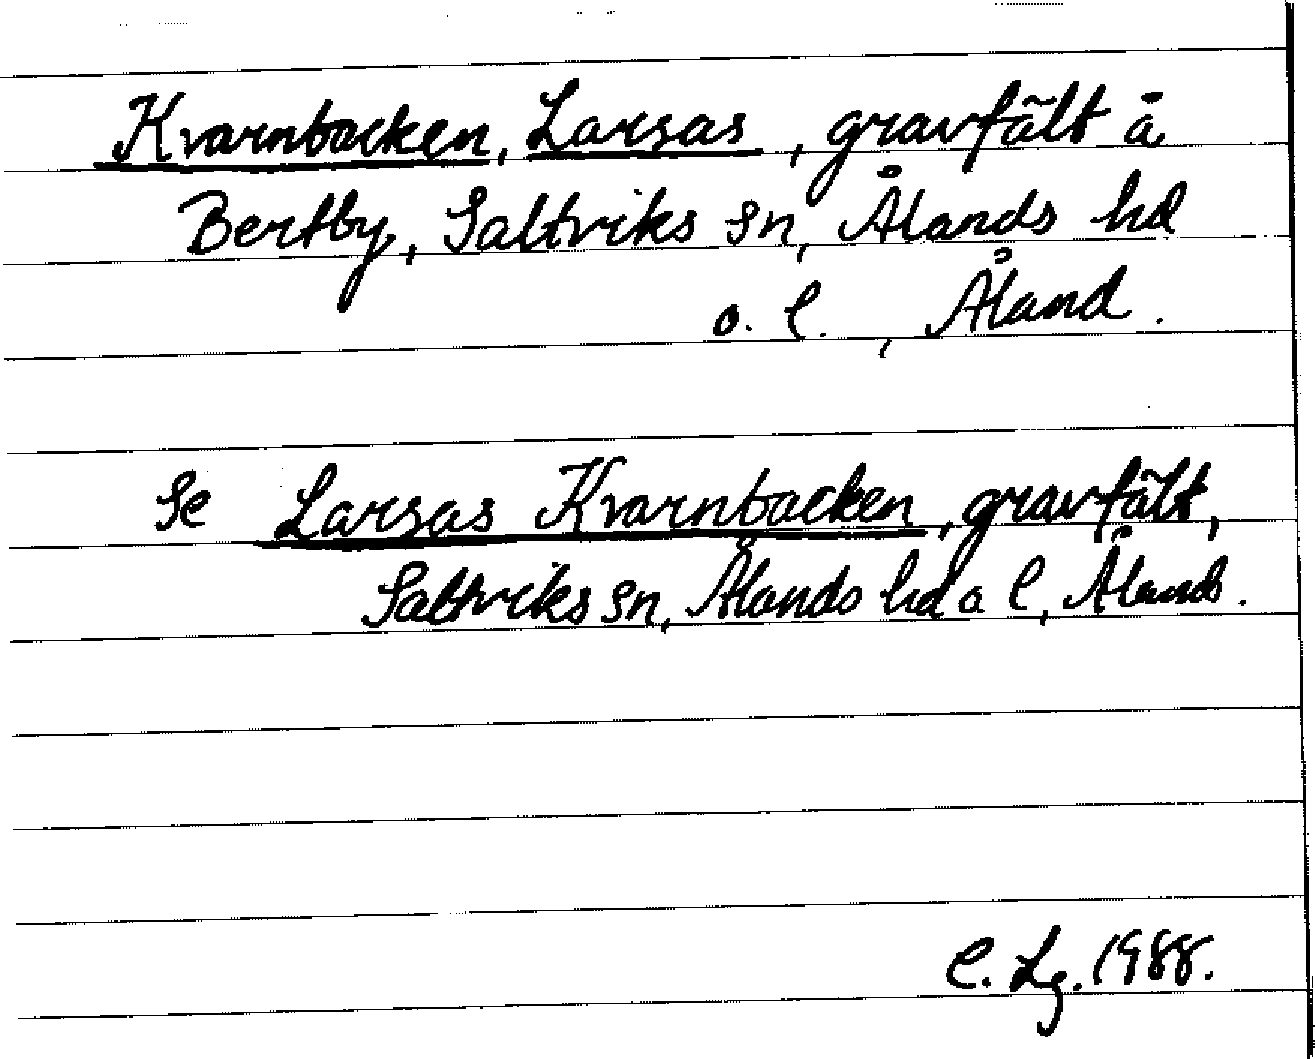 Kvarnbacken, Larsas, gravfält å
Bertby, Saltviks sn, Ålands hd
o. l., Åland.
Se Larsas Kvarnbacken, gravfält,
Saltviks sn, Ålands hd o l, Åland.
C. Lg. 1988.